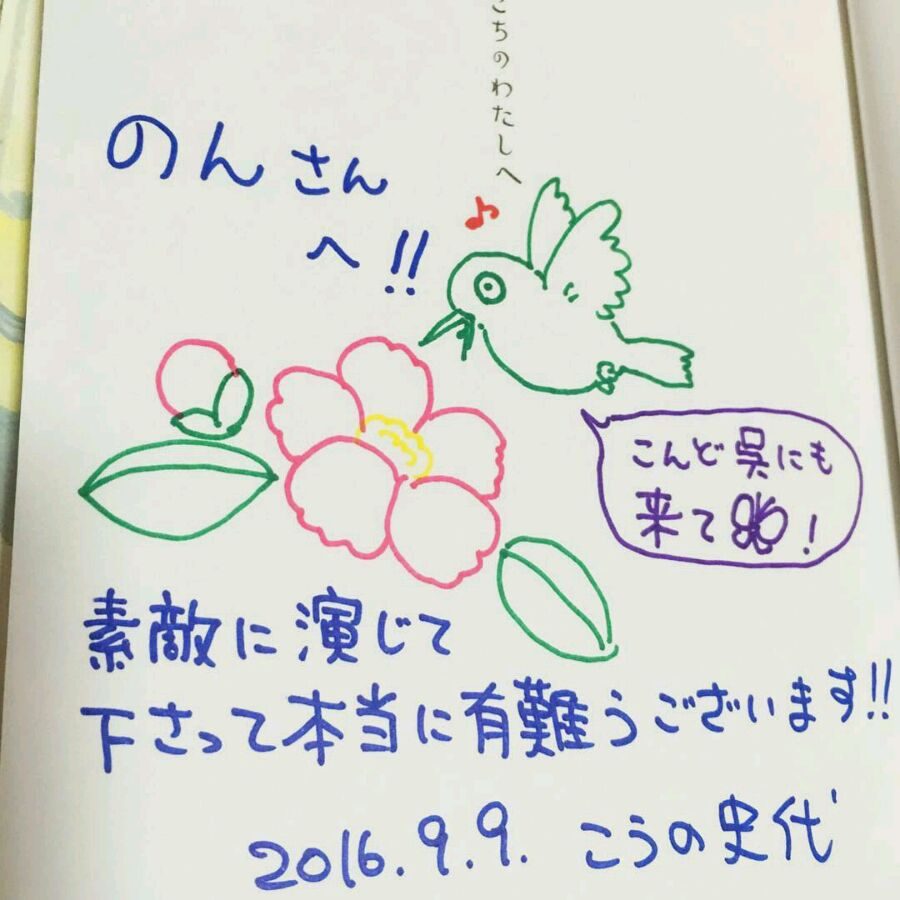 こちのわたしへ
のんさん
へ!!
こんど呉にも
来て!
素敵に演じて
下さって本当に有難うございます!!
2016.9.9. こうの史代